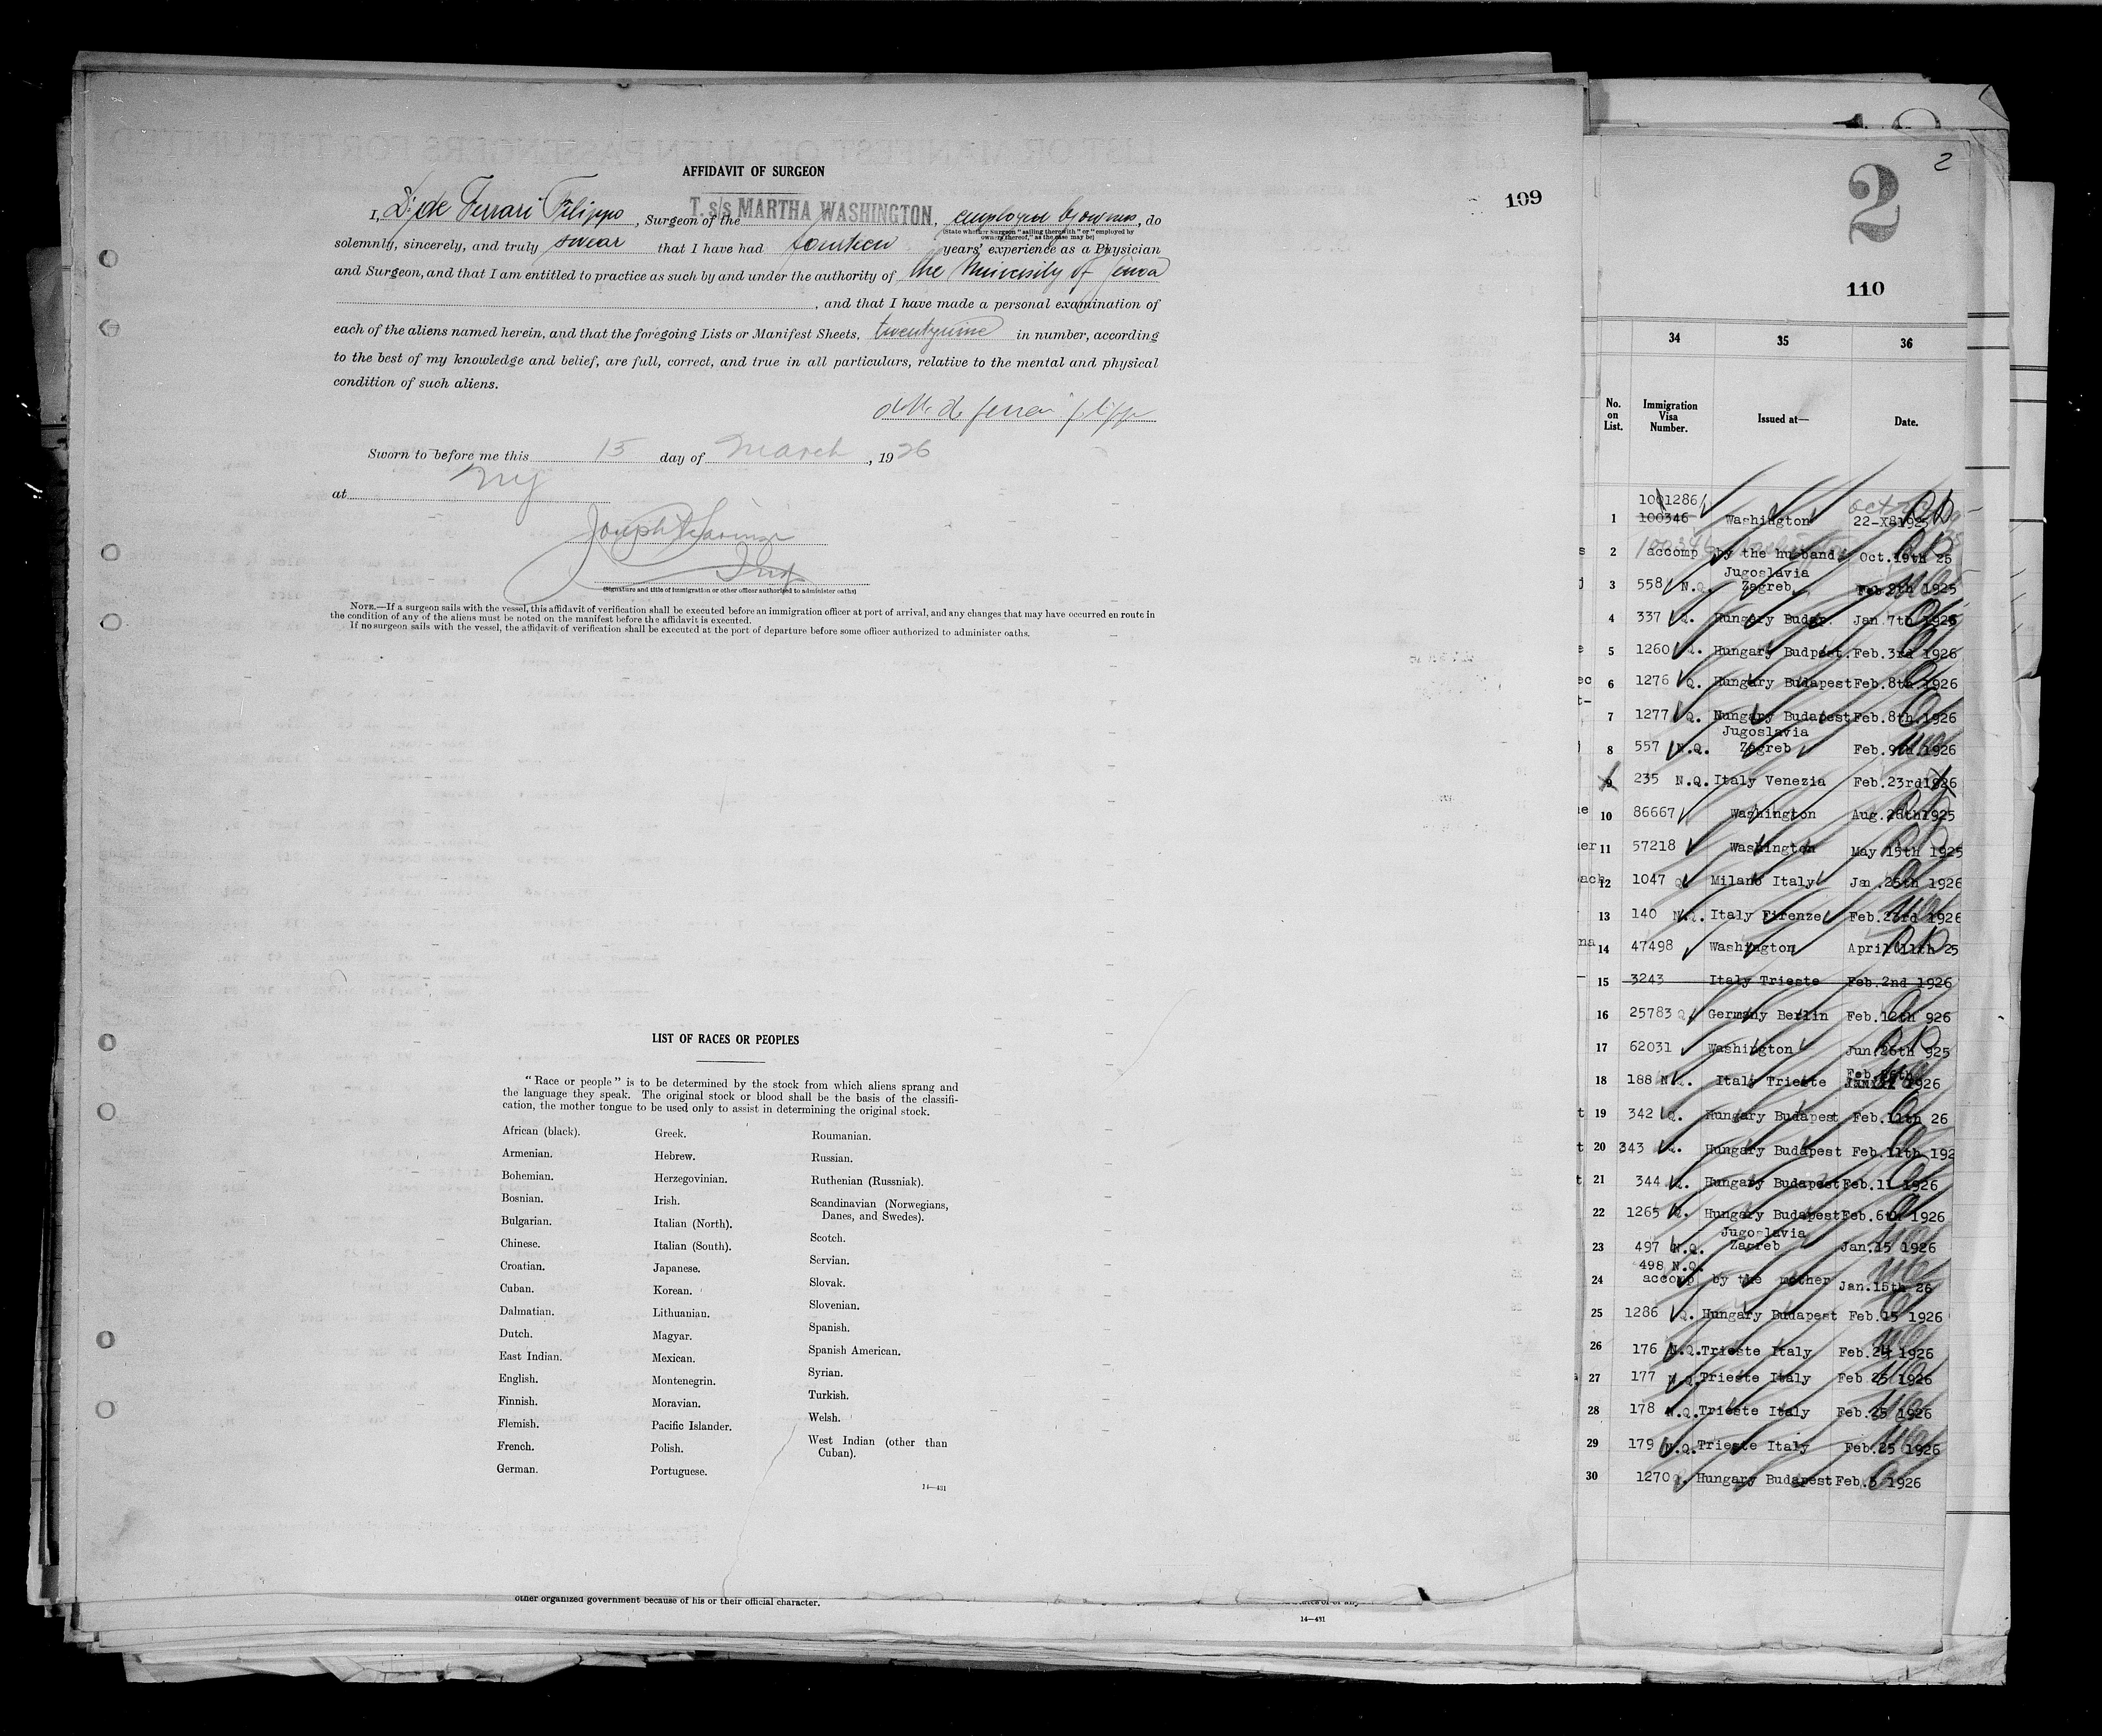 AFFIDAVIT OF SURGEON
109
I, Dr de Ferrari Filippo, Surgeon of the T. s/s MARTHA WASHINGTON, employed by owners, do
(State whether Surgeon "sailing therewith" or "employed by
owners thereof," as the case may be)
solemnly, sincerely, and truly swear that I have had fourteen years' experience as a Physician
and Surgeon, and that I am entitled to practice as such by and under the authority of the University of Genoa
, and that I have made a personal examination of
each of the aliens named herein, and that the foregoing Lists or Manifest Sheets, twentynine in number, according
to the best of my knowledge and belief, are full, correct, and true in all particulars, relative to the mental and physical
condition of such aliens.
Sworn to before me this 15 day of March, 1926
at NY
(Signature and title of immigration or other officer authorized to administer oaths)
NOTE.—If a surgeon sails with the vessel, this affidavit of verification shall be executed before an immigration officer at port of arrival, and any changes that may have occurred en route in
the condition of any of the aliens must be noted on the manifest before the affidavit is executed.
If no surgeon sails with the vessel, the affidavit of verification shall be executed at the port of departure before some officer authorized to administer oaths.
LIST OF RACES OR PEOPLES
"Race or people" is to be determined by the stock from which aliens sprang and
the language they speak. The original stock or blood shall be the basis of the classifi-
cation, the mother tongue to be used only to assist in determining the original stock.
African (black).
Armenian.
Bohemian.
Bosnian.
Bulgarian.
Chinese.
Croatian.
Cuban.
Dalmatian.
Dutch.
East Indian.
English.
Finnish.
Flemish.
French.
German.
Greek.
Hebrew.
Herzegovinian.
Irish.
Italian (North).
Italian (South).
Japanese.
Korean.
Lithuanian.
Magyar.
Mexican.
Montenegrin.
Moravian.
Pacific Islander.
Polish.
Portuguese.
Roumanian.
Russian.
Ruthenian (Russniak).
Scandinavian (Norwegians,
Danes, and Swedes).
Scotch.
Servian.
Slovak.
Slovenian.
Spanish.
Spanish American.
Syrian.
Turkish.
Welsh.
West Indian (other than
Cuban).
14—431
other organized government because of his or their official character.
14—431
2
2
110
34 35 36
No. on List. Immigration Visa Number. Issued at— Date.
1001286
1 100346 Washington 22-X81925
2 accomp by the husband Oct.19th 25
Jugoslavia
3 558 N.Q. Zagreb Feb 9th 1925
4 337 Q. Hungary Budap. Jan 7th 1926
5 1260 Q. Hungary Budpest. Feb.3rd 1926
6 1276 Q. Hungary Budapest Feb.8th.1926
7 1277 Q. Hungary Budapest Feb.8th.1926
Jugoslavia
8 557 N.Q. Zagreb Feb.9th.1926
9 235 N.Q. Italy Venezia Feb.23rd1926
10 86667 Washington Aug.28th1925
11 57218 Washington May 15th 1925
12 1047 Q Milano Italy Jan.25th 1926
13 140 N.Q. Italy Firenze Feb.23rd 1926
14 47498 Washington April 11th 25
15 3243 Italy Trieste Feb.2nd 1926
16 25783 Q. Germany Berlin Feb.12th 926
17 62031 Washington Jun.26th 925
18 188 N.Q. Italy Trieste Feb. 1926
19 342 Q. Hungary Budapest Feb.11th 26
20 343 Q. Hungary Budapest Feb.11th 192
21 344 Q. Hungary Budapest Feb.11 1926
22 1265 Q. Hungary Budapest Feb.6th 1926
Jugoslavia
23 497 N.Q. Zagreb Jan.15 1926
498 N.Q.
24 accomp by the mother Jan.15th 26
25 1286 Q. Hungary Budapest Feb.15 1926
26 176 N.Q. Trieste Italy Feb.24 1926
27 177 N.Q. Trieste Italy Feb 25 1926
28 178 N.Q. Trieste Italy Feb.25 1926
29 179 N.Q. Trieste Italy Feb.25 1926
30 1270 Q. Hungary Budapest Feb.5 1926